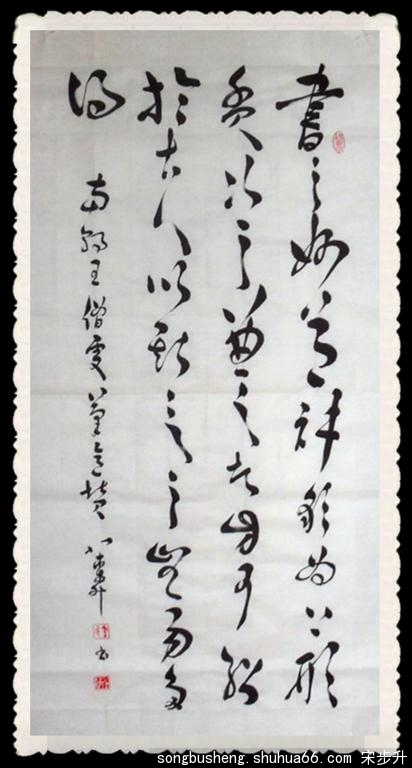 書之妙道神彩為上形
質次之兼之者方可紹
於古人以斯言之豈易多
得
南朝王僧虔筆意贊 步升 书
songbusheng.shuhua66.com 宋步升